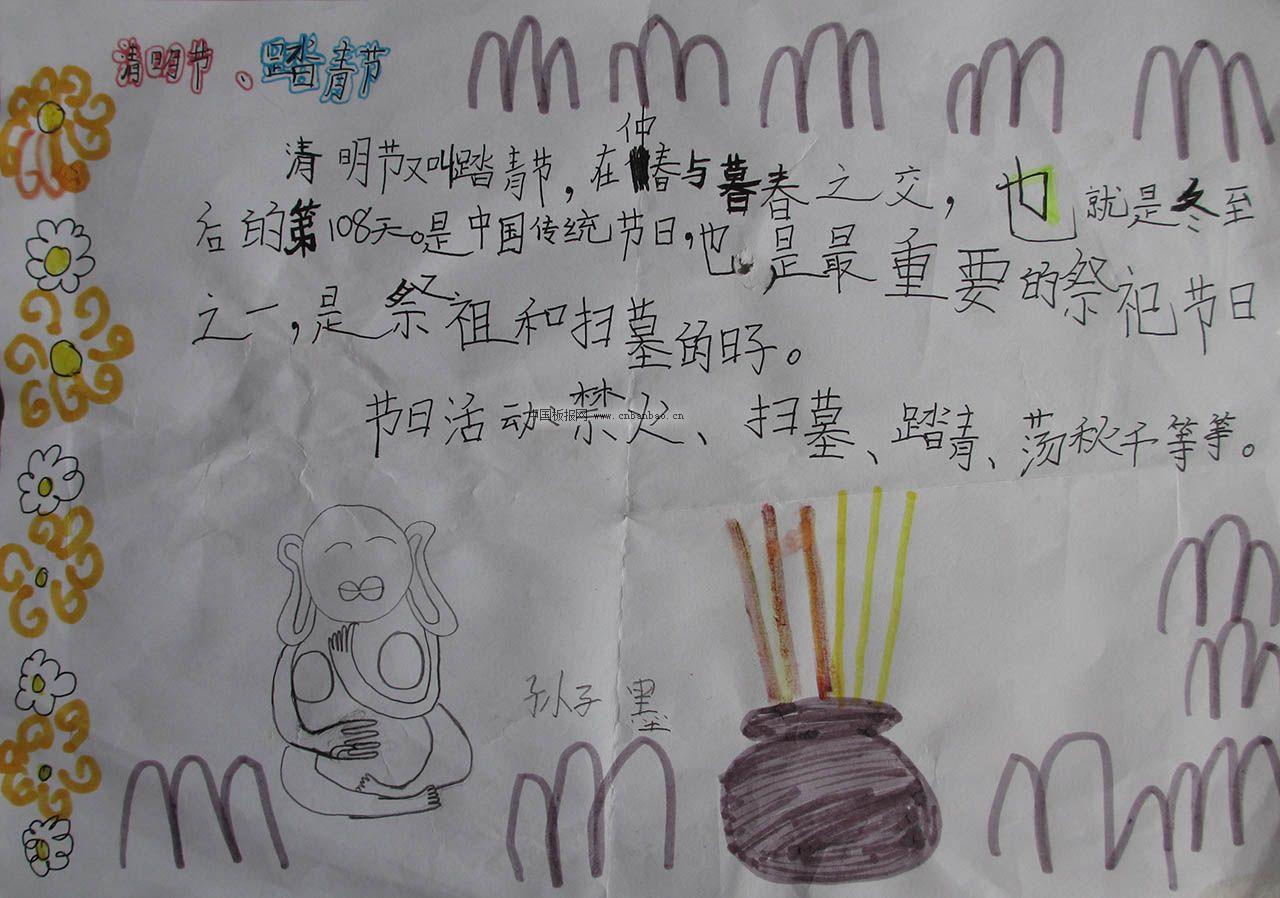 清明节、踏青节
清明节又叫踏青节,在仲春与暮春之交,也就是冬至
后的第108天。是中国传统节日,也是最重要的祭祀节日
之一,是祭祖和扫墓的日子。
节日活动、禁火、扫墓、踏青、荡秋千等等。
中国板报网 www.cnbanbao.cn
孙子墨